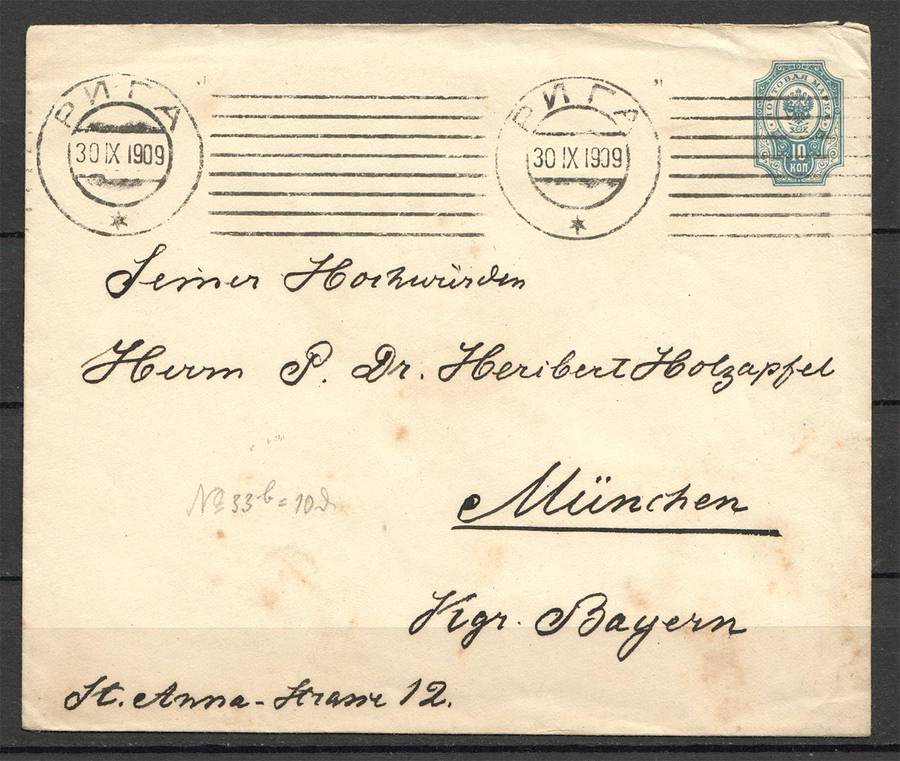 РИГА
30 IX 1909
РИГА
30 IX 1909
ПОЧТОВАЯ МАРКА
10
КОП
Seiner Hochwürden
Herrn P. Dr. Heribert Holzapfel
München
Kgr. Bayern
St. Anna-Strasse 12.
№ 33 b = 10